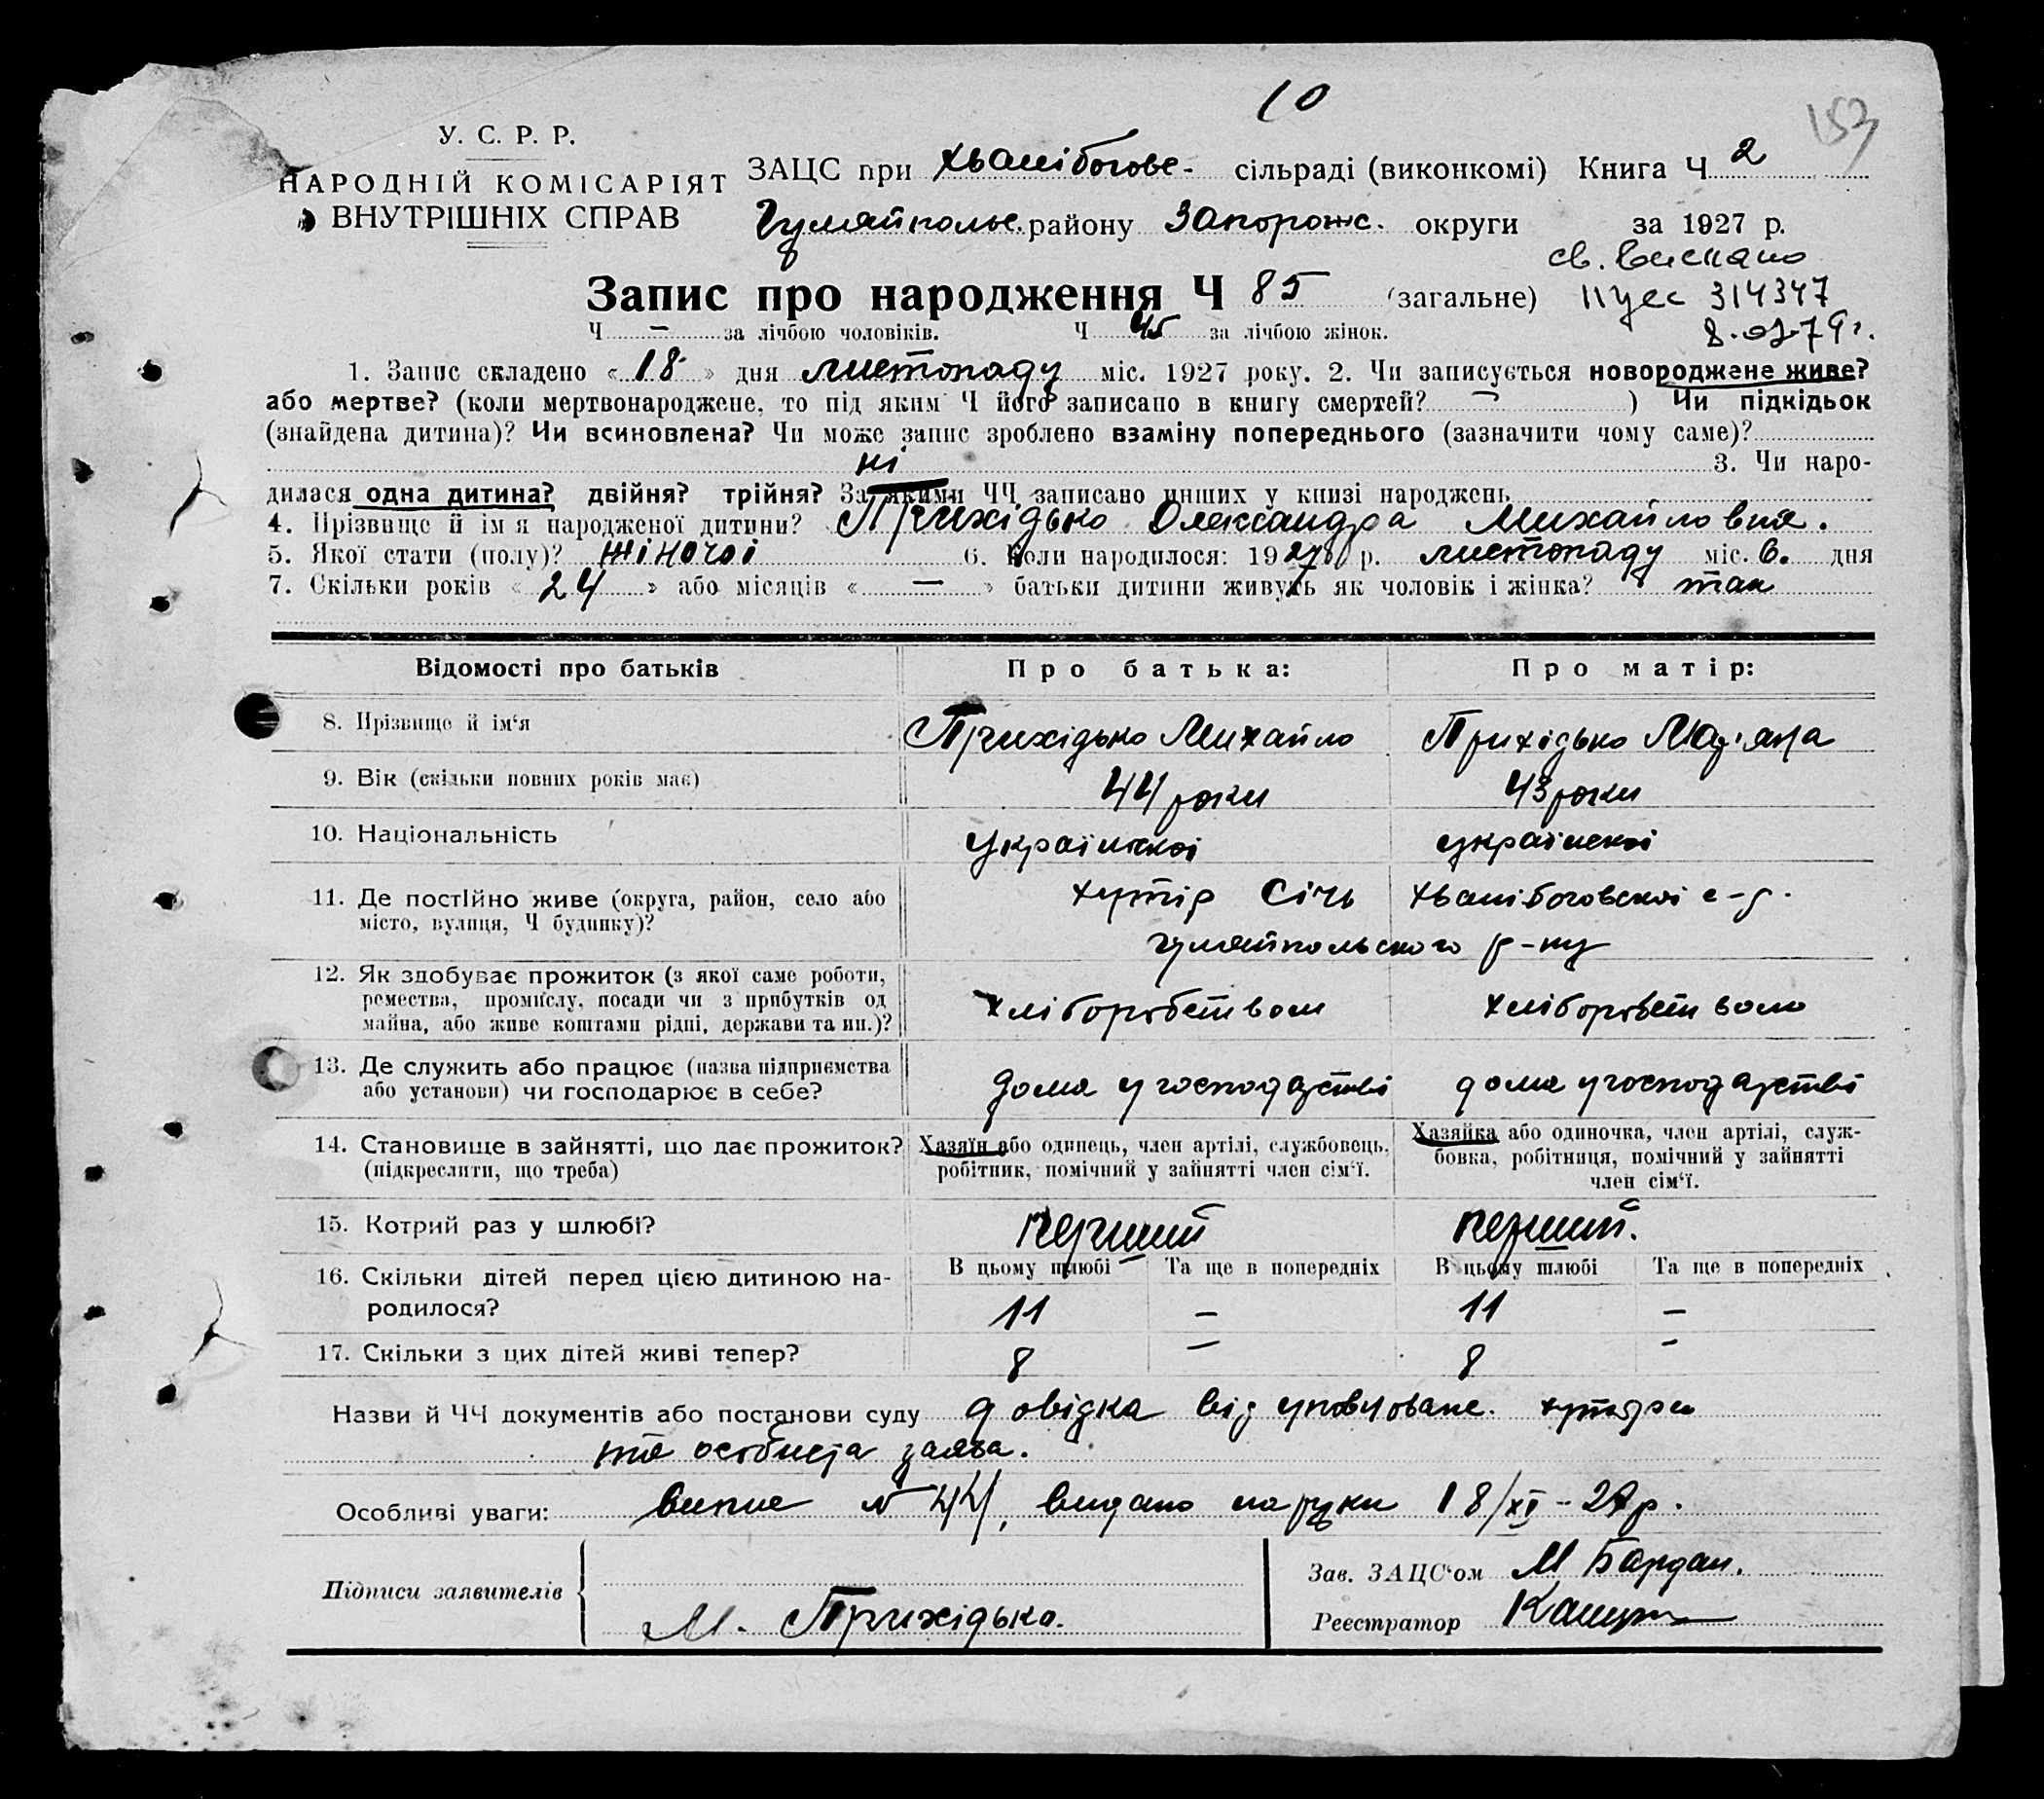 10
153
У. С. Р. Р.
НАРОДНІЙ КОМІСАРІЯТ
ВНУТРІШНІХ СПРАВ
ЗАЦС при Хвалібогове- сільраді (виконкомі) Книга Ч 2
Гуляйпольс. району Запорожс. округи за 1927 р.
св. выслано
Запис про народження Ч 85 (загальне) 314347
Ч — за лічбою чоловіків. Ч 45 за лічбою жінок.
1. Запис складено « 18 » дня листопаду міс. 1927 року. 2. Чи записується новороджене живе?
або мертве? (коли мертвонароджене, то під яким Ч його записано в книгу смертей? — ) Чи підкідьок
(знайдена дитина)? Чи всиновлена? Чи може запис зроблено взаміну попереднього (зазначити чому саме)?
ні 3. Чи наро-
дилася одна дитина? двійня? трійня? За якими ЧЧ записано инших у книзі народжень
4. Прізвище й ім'я народженої дитини? Прихідько Олександра Михайловна.
5. Якої стати (полу)? жіночоі 6. Коли народилося: 1927 р. листопаду міс. 6. дня
7. Скільки років « 24 » або місяців « — » батьки дитини живуть як чоловік і жінка? так
Відомості про батьків Про батька: Про матір:
8. Прізвище й ім'я Прихідько Михайло Прихідько
9. Вік (скільки повних років має) 44 роки 43 роки
10. Національність українскоі українскоі
11. Де постійно живе (округа, район, село або хутір Січь Хвалібоговскоі с-р.
місто, вулиця, Ч будинку)? гуляйпольского р-ну
12. Як здобуває прожиток (з якої саме роботи,
ремества, промислу, посади чи з прибутків од хліборобством хліборобством
майна, або живе коштами рідні, держави та ин.)?
13. Де служить або працює (назва підприємства
або установи) чи господарює в себе? дома у господарстві дома у господарстві
14. Становище в зайнятті, що дає прожиток? Хазяїн або одинець, член артілі, службовець, Хазяйка або одиночка, член артілі, служ-
(підкреслити, що треба) робітник, помічний у зайнятті член сім'ї. бовка, робітниця, помічний у зайнятті
член сім'ї.
15. Котрий раз у шлюбі? перший перший.
16. Скільки дітей перед цією дитиною на- В цьому шлюбі Та ще в попередніх В цьому шлюбі Та ще в попередніх
родилося? 11 — 11 —
17. Скільки з цих дітей живі тепер? 8 — 8 —
Назви й ЧЧ документів або постанови суду довідка від уповноваже. хутора
та особиста заява.
Особливі уваги: випис N 44, видано на руки 18/XI - 27 р.
Підписи заявителів М. Прихідько.
Зав. ЗАЦС'ом М Бардан.
Реєстратор